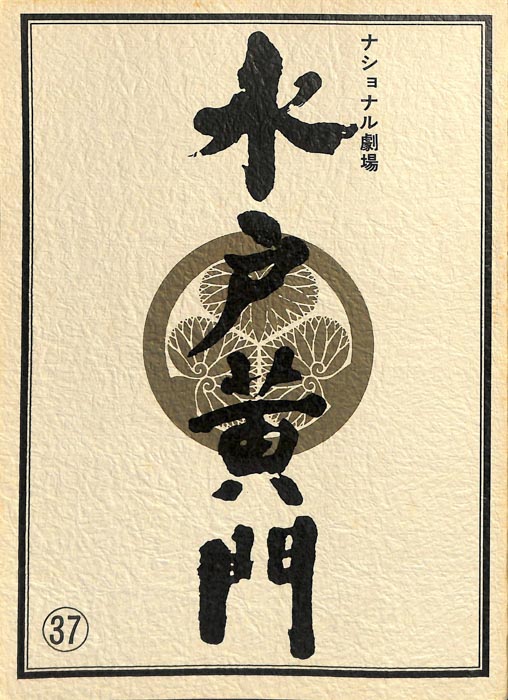 ナショナル劇場
水戸黄門
㊲